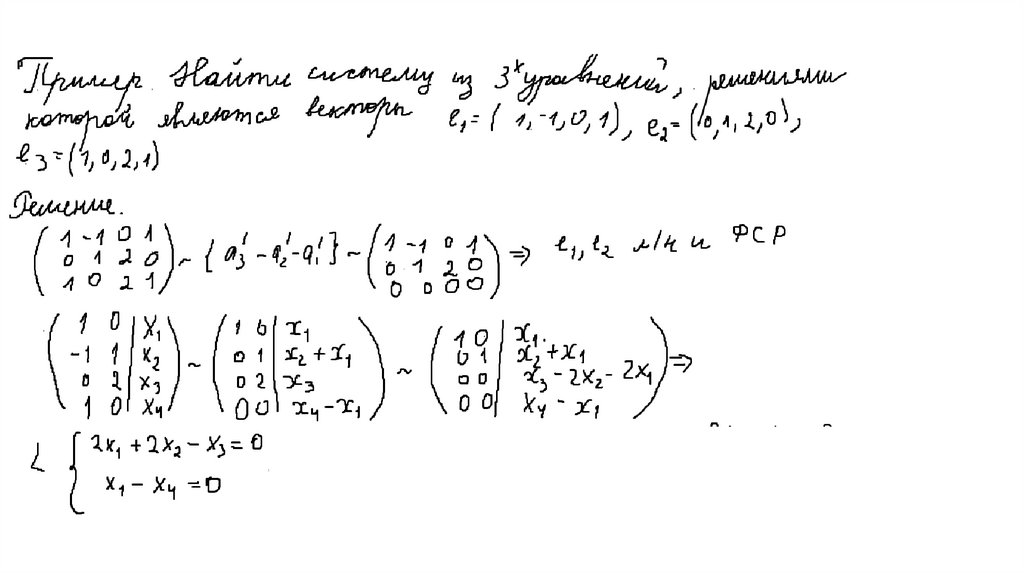 Пример. Найти систему из 3х уравнений, решениями
которой являются векторы e₁=(1,-1,0,1), e₂=(0,1,2,0),
e₃=(1,0,2,1)
Решение.
(1 -1 0 1; 0 1 2 0; 1 0 2 1) ~ {a₃' - a₂' - a₁'} ~ (1 -1 0 1; 0 1 2 0; 0 0 0 0) ⇒ e₁, e₂ л/н и ФСР
(1 0 | x₁; -1 1 | x₂; 0 2 | x₃; 1 0 | x₄) ~ (1 0 | x₁; 0 1 | x₂+x₁; 0 2 | x₃; 0 0 | x₄-x₁) ~ (1 0 | x₁; 0 1 | x₂+x₁; 0 0 | x₃-2x₂-2x₁; 0 0 | x₄-x₁) ⇒
L { 2x₁+2x₂-x₃=0
x₁-x₄=0